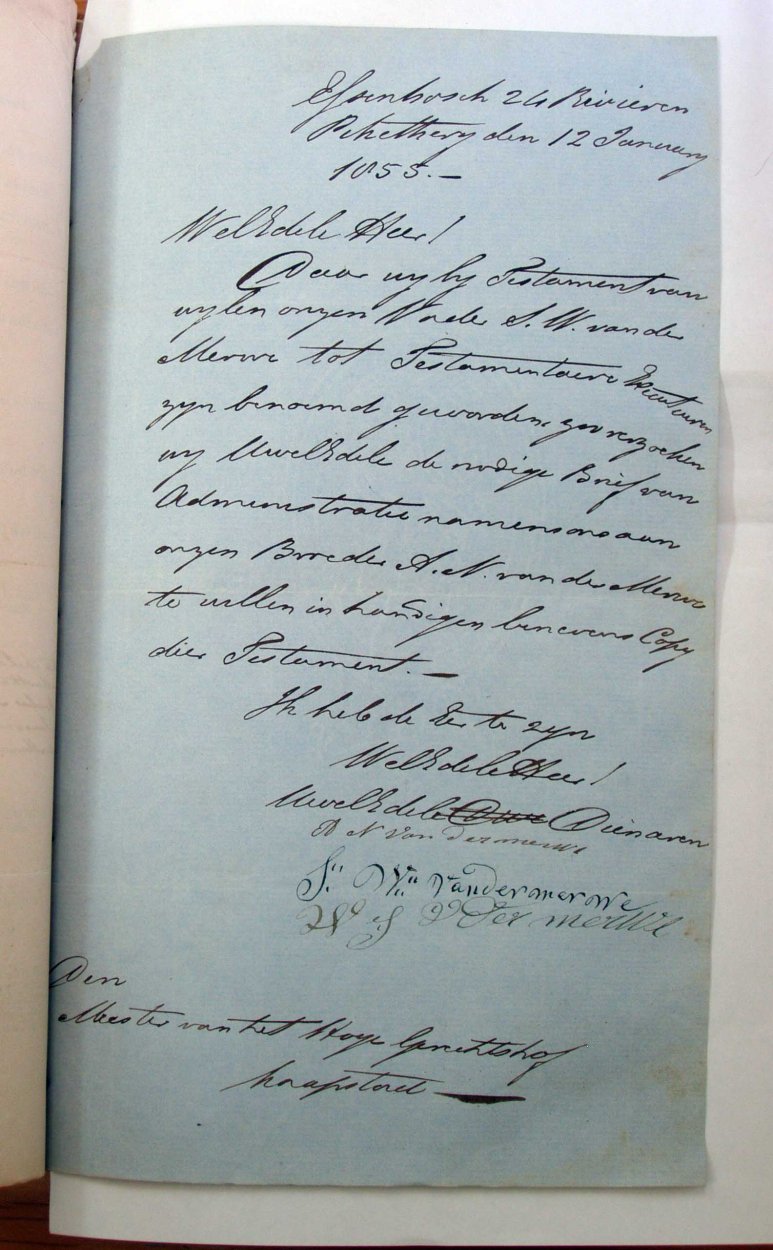 Essenbosch 24 Rivieren
Piketberg den 12 January
1855.—
WelEdele Heer!
Daar wy by Testament van
wylen onzen Vader S. W. van der
Merwe tot Testamentaire Executeuren
zyn benoemd geworden, zoo verzoeken
wy UwelEdele de nodige Brief van
Administratie namens ons aan
onzen Broeder A. N. van der Merwe
te willen in handigen benevens Copy
dier Testament.—
Ik heb de Eer te zyn
WelEdele Heer!
UwelEdele Dienaren
D N Van Dermerwe
S: W: Vandermerwe
W S V Der merWe
Den
Meester van het Hoge Gerechtshof
Kaapstad —